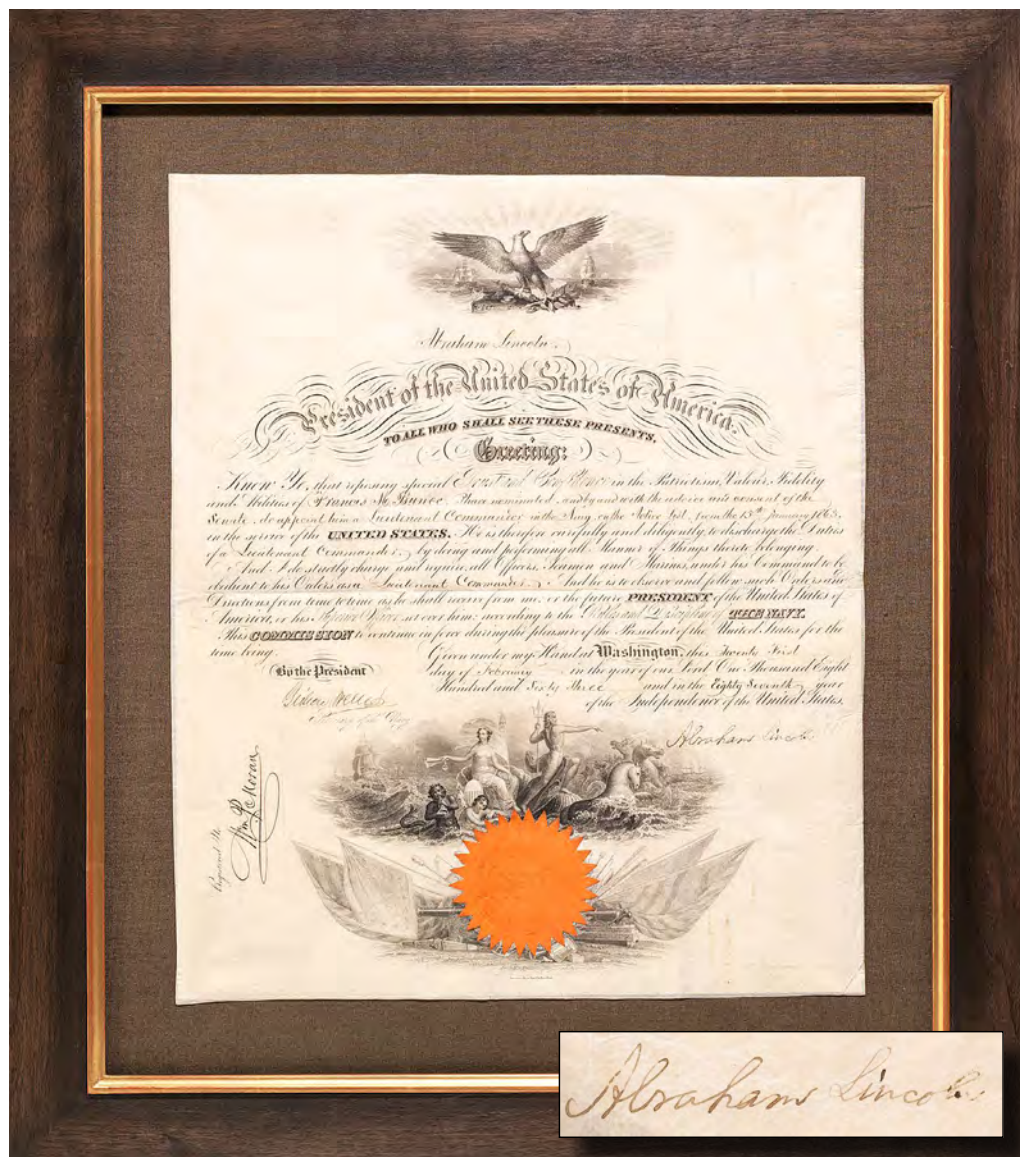 Abraham Lincoln.
President of the United States of America.
TO ALL WHO SHALL SEE THESE PRESENTS,
Greeting:
Know Ye, that reposing special Trust and Confidence in the Patriotism, Valour, Fidelity
and Abilities of Francis M. I have nominated, and by and with the advice and consent of the
Senate, do appoint him a Lieutenant Commander in the Navy, on the Active List, from the 13th January 1863,
in the service of the UNITED STATES. He is therefore carefully and diligently, to discharge the Duties
of a Lieutenant Commander, by doing and performing all Manner of Things thereto belonging.
And I do strictly charge and require, all Officers, Seamen and Marines, under his Command to be
obedient to his Orders as a Lieutenant Commander. And he is to observe and follow such Orders and
Directions from time to time as he shall receive from me, or the future PRESIDENT of the United States of
America, or his Superior Officer set over him, according to the Rules and Discipline of THE NAVY.
This COMMISSION to continue in force during the pleasure of the President of the United States for the
time being.
Given under my Hand at Washington, this Twenty First
day of February in the year of our Lord One Thousand Eight
Hundred and Sixty Three and in the Eighty Seventh year
of the Independence of the United States.
By the President
Gideon Welles
Secretary of the Navy
Abraham Lincoln
Registered No.
Wm. P. Moran
Abraham Lincoln